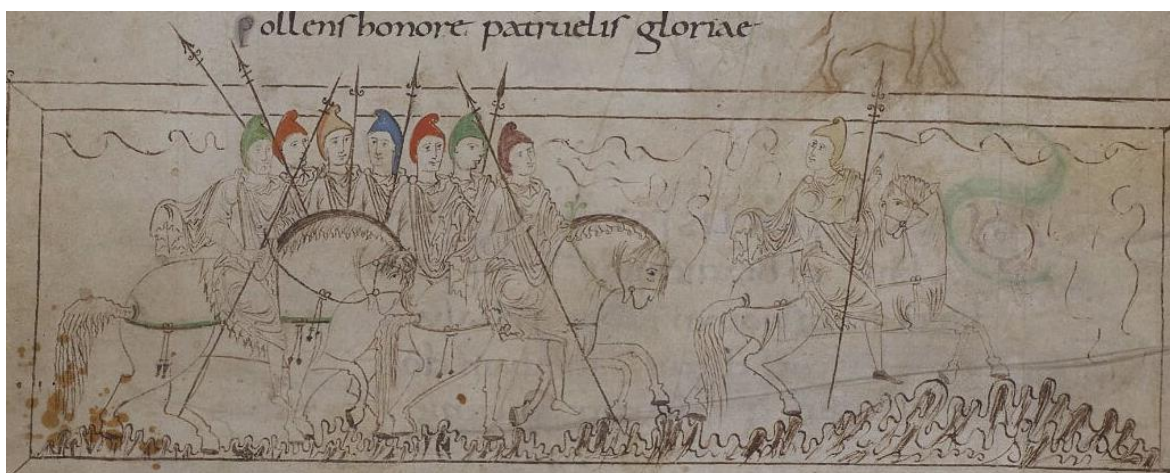 Pollens honore patruelis gloriae